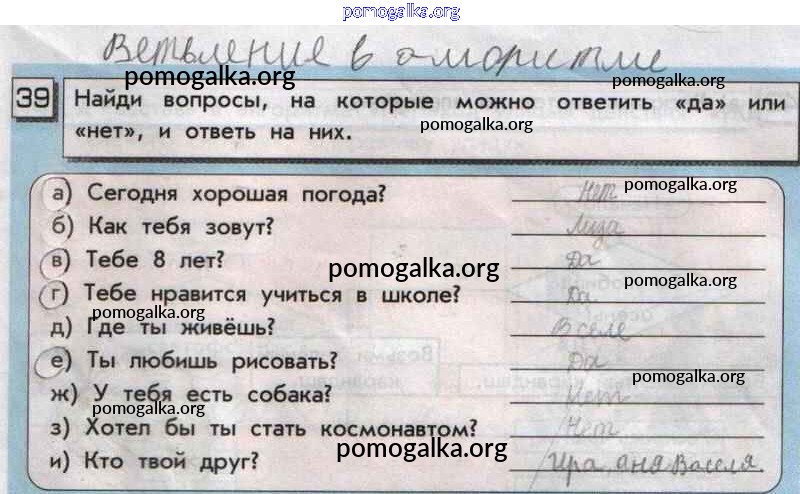 pomogalka.org
Ветвление в
pomogalka.org pomogalka.org
39 Найди вопросы, на которые можно ответить «да» или
«нет», и ответь на них.
pomogalka.org
а) Сегодня хорошая погода? Нет
pomogalka.org
б) Как тебя зовут? Лиза
в) Тебе 8 лет? Да
pomogalka.org
pomogalka.org
г) Тебе нравится учиться в школе? Да
pomogalka.org
д) Где ты живёшь? В селе
е) Ты любишь рисовать? Да
pomogalka.org
ж) У тебя есть собака? Нет
pomogalka.org
з) Хотел бы ты стать космонавтом? Нет
pomogalka.org
и) Кто твой друг? Ира